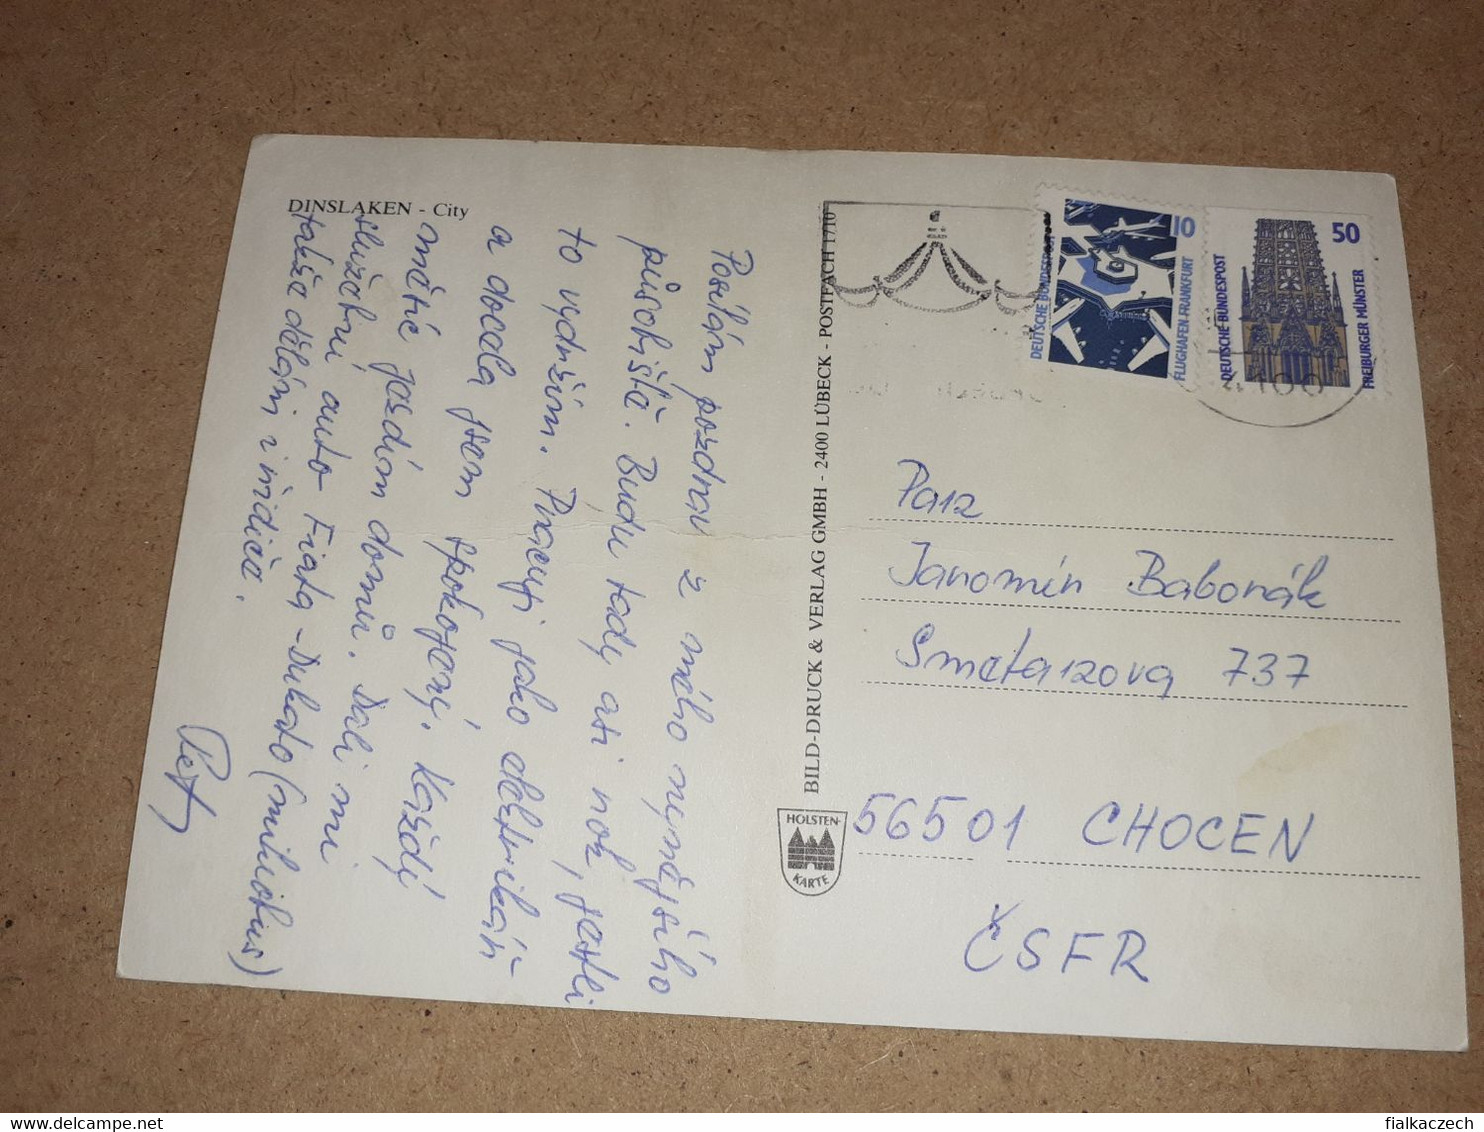 DINSLAKEN - City
Posílám pozdrav z mého nynějšího
působiště. Budu tady asi rok, jestli
to vydržím. Pracuji jako elektrikář
a docela jsem spokojený. Každý
měsíc jezdím domů. Dali mi
služební auto Fiata - Dukato (mikrobus)
takže dělám i řidiče.
Petr
BILD-DRUCK & VERLAG GMBH - 2400 LÜBECK - POSTFACH 1710
HOLSTEN-
KARTE
10
DEUTSCHE BUNDESPOST
FLUGHAFEN FRANKFURT
50
DEUTSCHE BUNDESPOST
FREIBURGER MÜNSTER
Pan
Jaromír Baborák
Smetanova 737
56501 CHOCEN
ČSFR
delcampe.net
fialkaczech